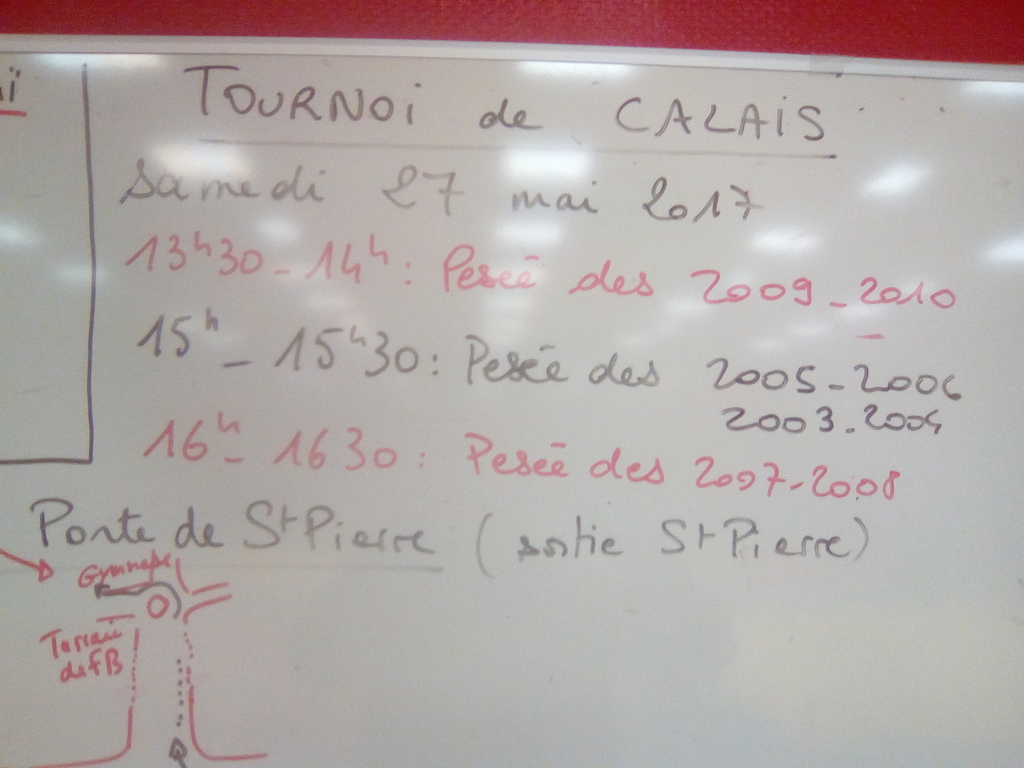 ï
TOURNOi de CALAiS
Samedi 27 mai 2017
13h30 - 14h : Peseé des 2009 - 2010
15h - 15h30 : Peseé des 2005 - 2006
2003 . 2004
16h - 1630 : Peseé des 2007 - 2008
Porte de St Pierre ( sortie St Pierre )
Gymnase
Terrain
de FB